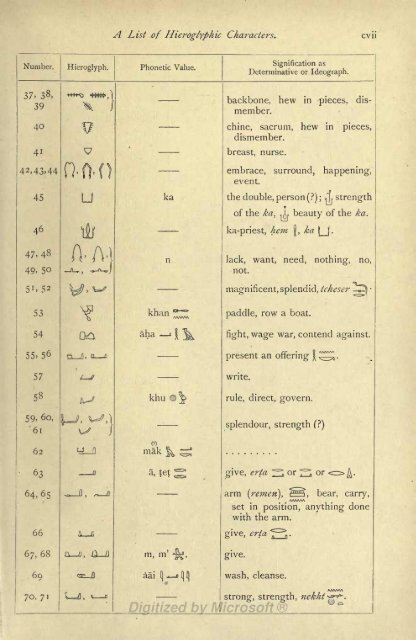 A List of Hieroglyphic Characters. cvii
Number. Hieroglyph. Phonetic Value. Signification as
Determinative or Ideograph.
37, 38,
39 backbone, hew in pieces, dis-
member.
40 chine, sacrum, hew in pieces,
dismember.
41 breast, nurse.
42, 43, 44 embrace, surround, happening,
event.
45 ka the double, person (?); strength
of the ka, beauty of the ka.
46 ka-priest, ḥem, ka
47, 48
49, 50 n lack, want, need, nothing, no,
not.
51, 52 magnificent, splendid, tcheser
53 khan paddle, row a boat.
54 āḥa fight, wage war, contend against.
55, 56 present an offering
57 write.
58 khu rule, direct, govern.
59, 60,
61 splendour, strength (?)
62 māk (?) . . . . . . . . .
63 ā, ṭeṭ give, erṭa or or
64, 65 arm (remen), bear, carry,
set in position, anything done
with the arm.
66 give, erṭa
67, 68 m, m' give.
69 āāi wash, cleanse.
70, 71 strong, strength, nekht
Digitized by Microsoft ®